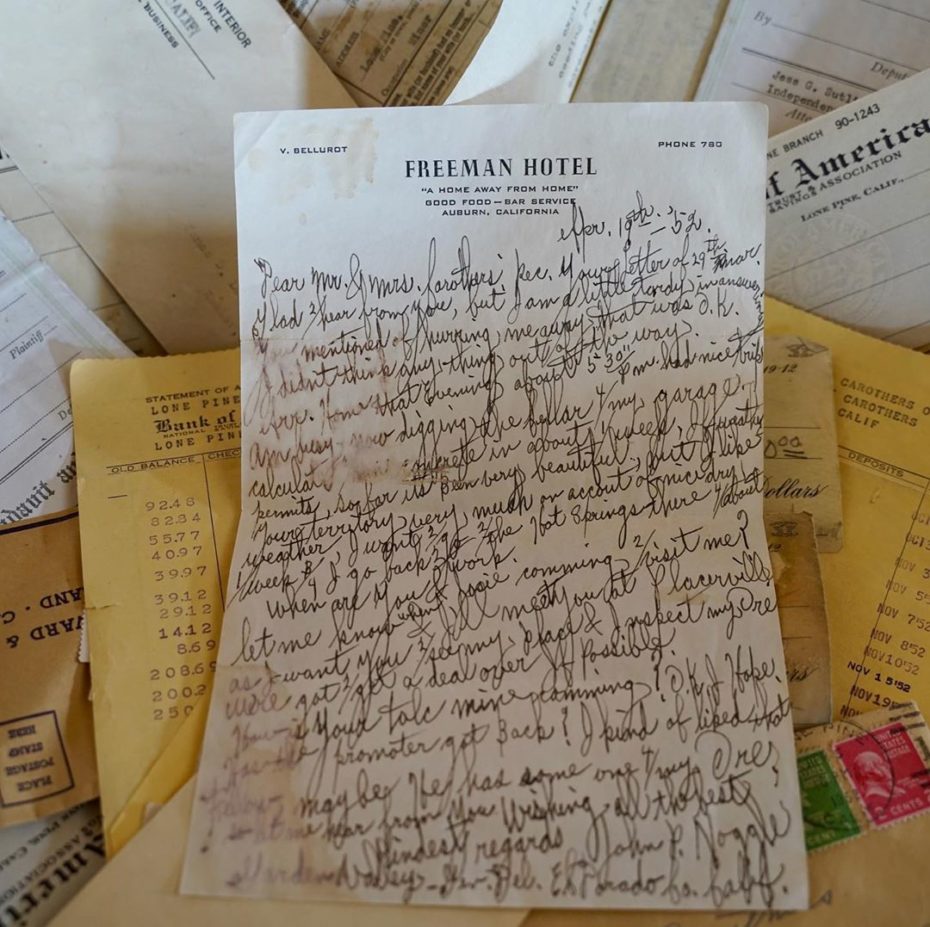 INTERIOR
OFFICE
BUSINESS
By
Deputy
Jess G. Sutl
Independen
NE BRANCH 90-1243
of America
TRUST & SAVINGS ASSOCIATION
LONE PINE, CALIF.,
V. BELLUROT
PHONE 780
FREEMAN HOTEL
"A HOME AWAY FROM HOME"
GOOD FOOD—BAR SERVICE
AUBURN, CALIFORNIA
Apr. 19th - 52.
Dear Mr. & Mrs. Carothers; Rec. Your Letter of 29th Mar.
Glad 2 hear from you, but I am a little tardy in answer
You mentioned of hurring me away, that was O.K.
I didn't think any-thing out of the way.
Arr. Home that Evening about 5-30" P.m. had nice trip
am busy now digging the Cellar 4 my garage.
calculate concrete in about 2 weeks, if weather
permits, so far its been very beautiful, but I like
Your territory very much on account of nice dry
weather, I want 2 go 2 the Hot Springs there 4 about
1 week B4 I go back 2 work.
When are You & comming 2 visit me?
let me know when & I'll meet you at Placerville
as I want you 2 see my place & Inspect my Ore
got 2 get a deal over If Possible.
How is Your talc mine comming? O.K. I Hope.
Has the promoter got Back? I kind of liked that
fellow maybe He has some one 4 my Ore,
so let me hear from You Wishing all the best
Kindest regards John P. Noggle
Garden Valley - Gen. Del. El Dorado Co. Calif.
Plaintiff
STATEMENT OF A
LONE PINE
Bank of
NATIONAL
LONE PIN
OLD BALANCE
CHEC
92.48
82.34
55.77
40.97
39.97
39.12
29.12
14.12
8.69
208.69
200.2
250
CAROTHERS OF
CAROTHERS
CALIF
Dollars
DEPOSITS
NOV 3
NOV 5
NOV 7'52
NOV 8'52
NOV 10'52
NOV 15'52
NOV 19
PLACE
POSTAGE
STAMP
HERE
UNITED STATES POSTAGE
CENTS